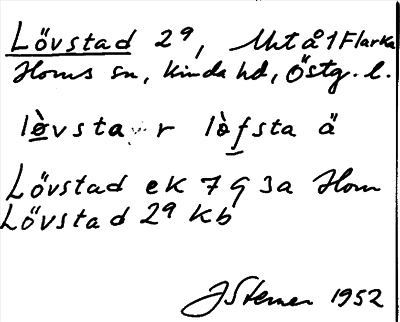 Lövstad 2⁹, Uht å 1 Flarka
Horns sn, Kinda hd, Östg. l.
lø̀vsta r lòfsta ä
Lövstad ek 7 9 3a Horn
Lövstad 2⁹ Kb
J Sterner 1952